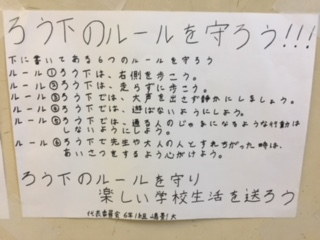 ろう下のルールを守ろう!!!
下に書いてある6つのルールを守ろう
ルール①ろう下は、右側を歩こう。
ルール②ろう下は、走らずに歩こう。
ルール③ろう下では、大声を出さず静かにしましょう。
ルール④ろう下では、遊ばないようにしよう。
ルール⑤ろう下では、通る人のじゃまになるような行動は
しないようにしよう。
ルール⑥ろう下で先生や大人の人とすれちがった時は、
あいさつをするよう心がけよう。
ろう下のルールを守り
楽しい学校生活を送ろう
代表委員会 6年1組